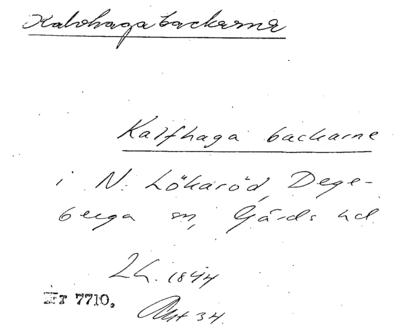 Kalvhagabackarna
Kalfhaga backarne
i N. Lökaröd, Dege-
berga sn, Gärds hd.
LK. 1844
Nr 7710, Akt 34.